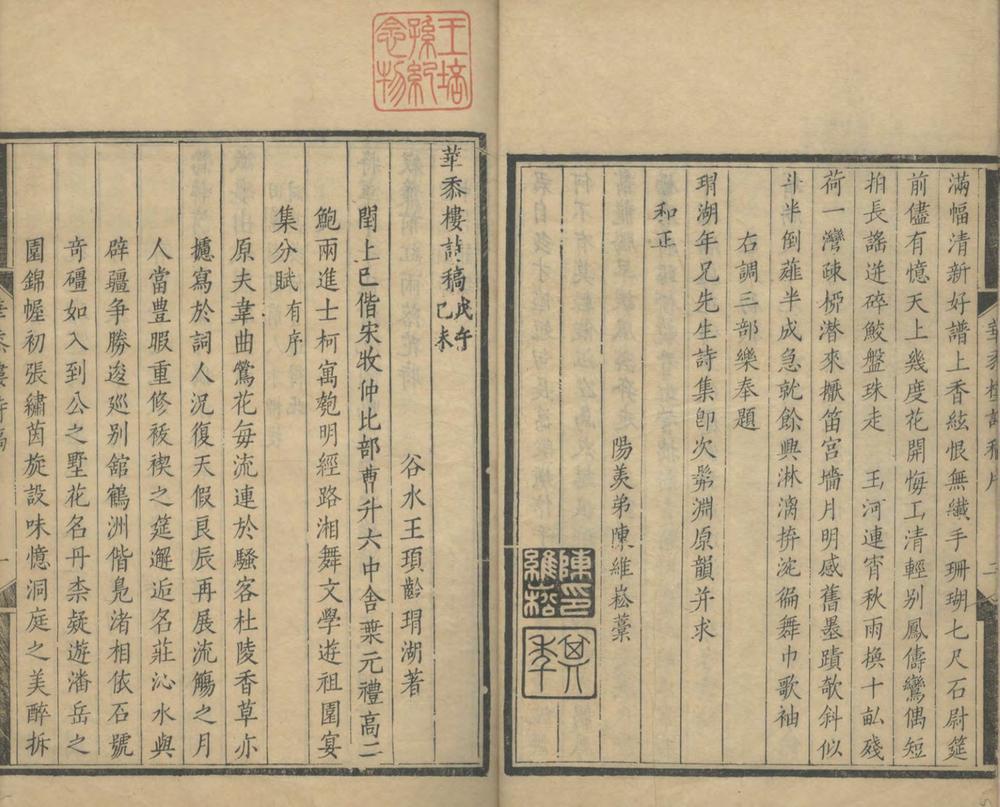 滿幅清新好譜上香絃恨無纖手珊瑚七尺石尉筵
前儘有憶天上幾度花開悔工清輕别鳳儔鸞偶短
拍長謠迸碎鮫盤珠走　玉河連宵秋雨換十畝殘
荷一灣疎栁潜來擫笛宮墻月明感舊墨蹟欹斜似
斗半倒薤半成急就餘興淋漓拚沱徧舞巾歌袖
右調三部樂奉題
瑁湖年兄先生詩集卽次粥淵原韻并求
和正
陽羡弟陳維崧藁
陳維崧印
其年
王培孫紀念物
華黍樓詩稿戊午己未
谷水王頊齡瑁湖著
閏上巳偕宋牧仲比部曹升六中舍葉元禮高二
鮑兩進士柯寓匏明經路湘舞文學遊祖園宴
集分賦有序
原夫韋曲鶯花每流連於騷客杜陵香草亦
攄寫於詞人況復天假良辰再展流觴之月
人當豊暇重修祓禊之筵邂逅名莊沁水與
辟疆争勝逡廵别舘鶴洲偕鳧渚相依石號
竒礓如入到公之墅花名丹柰疑遊潘岳之
園錦幄初張繡茵旋設味憶洞庭之美醉拆